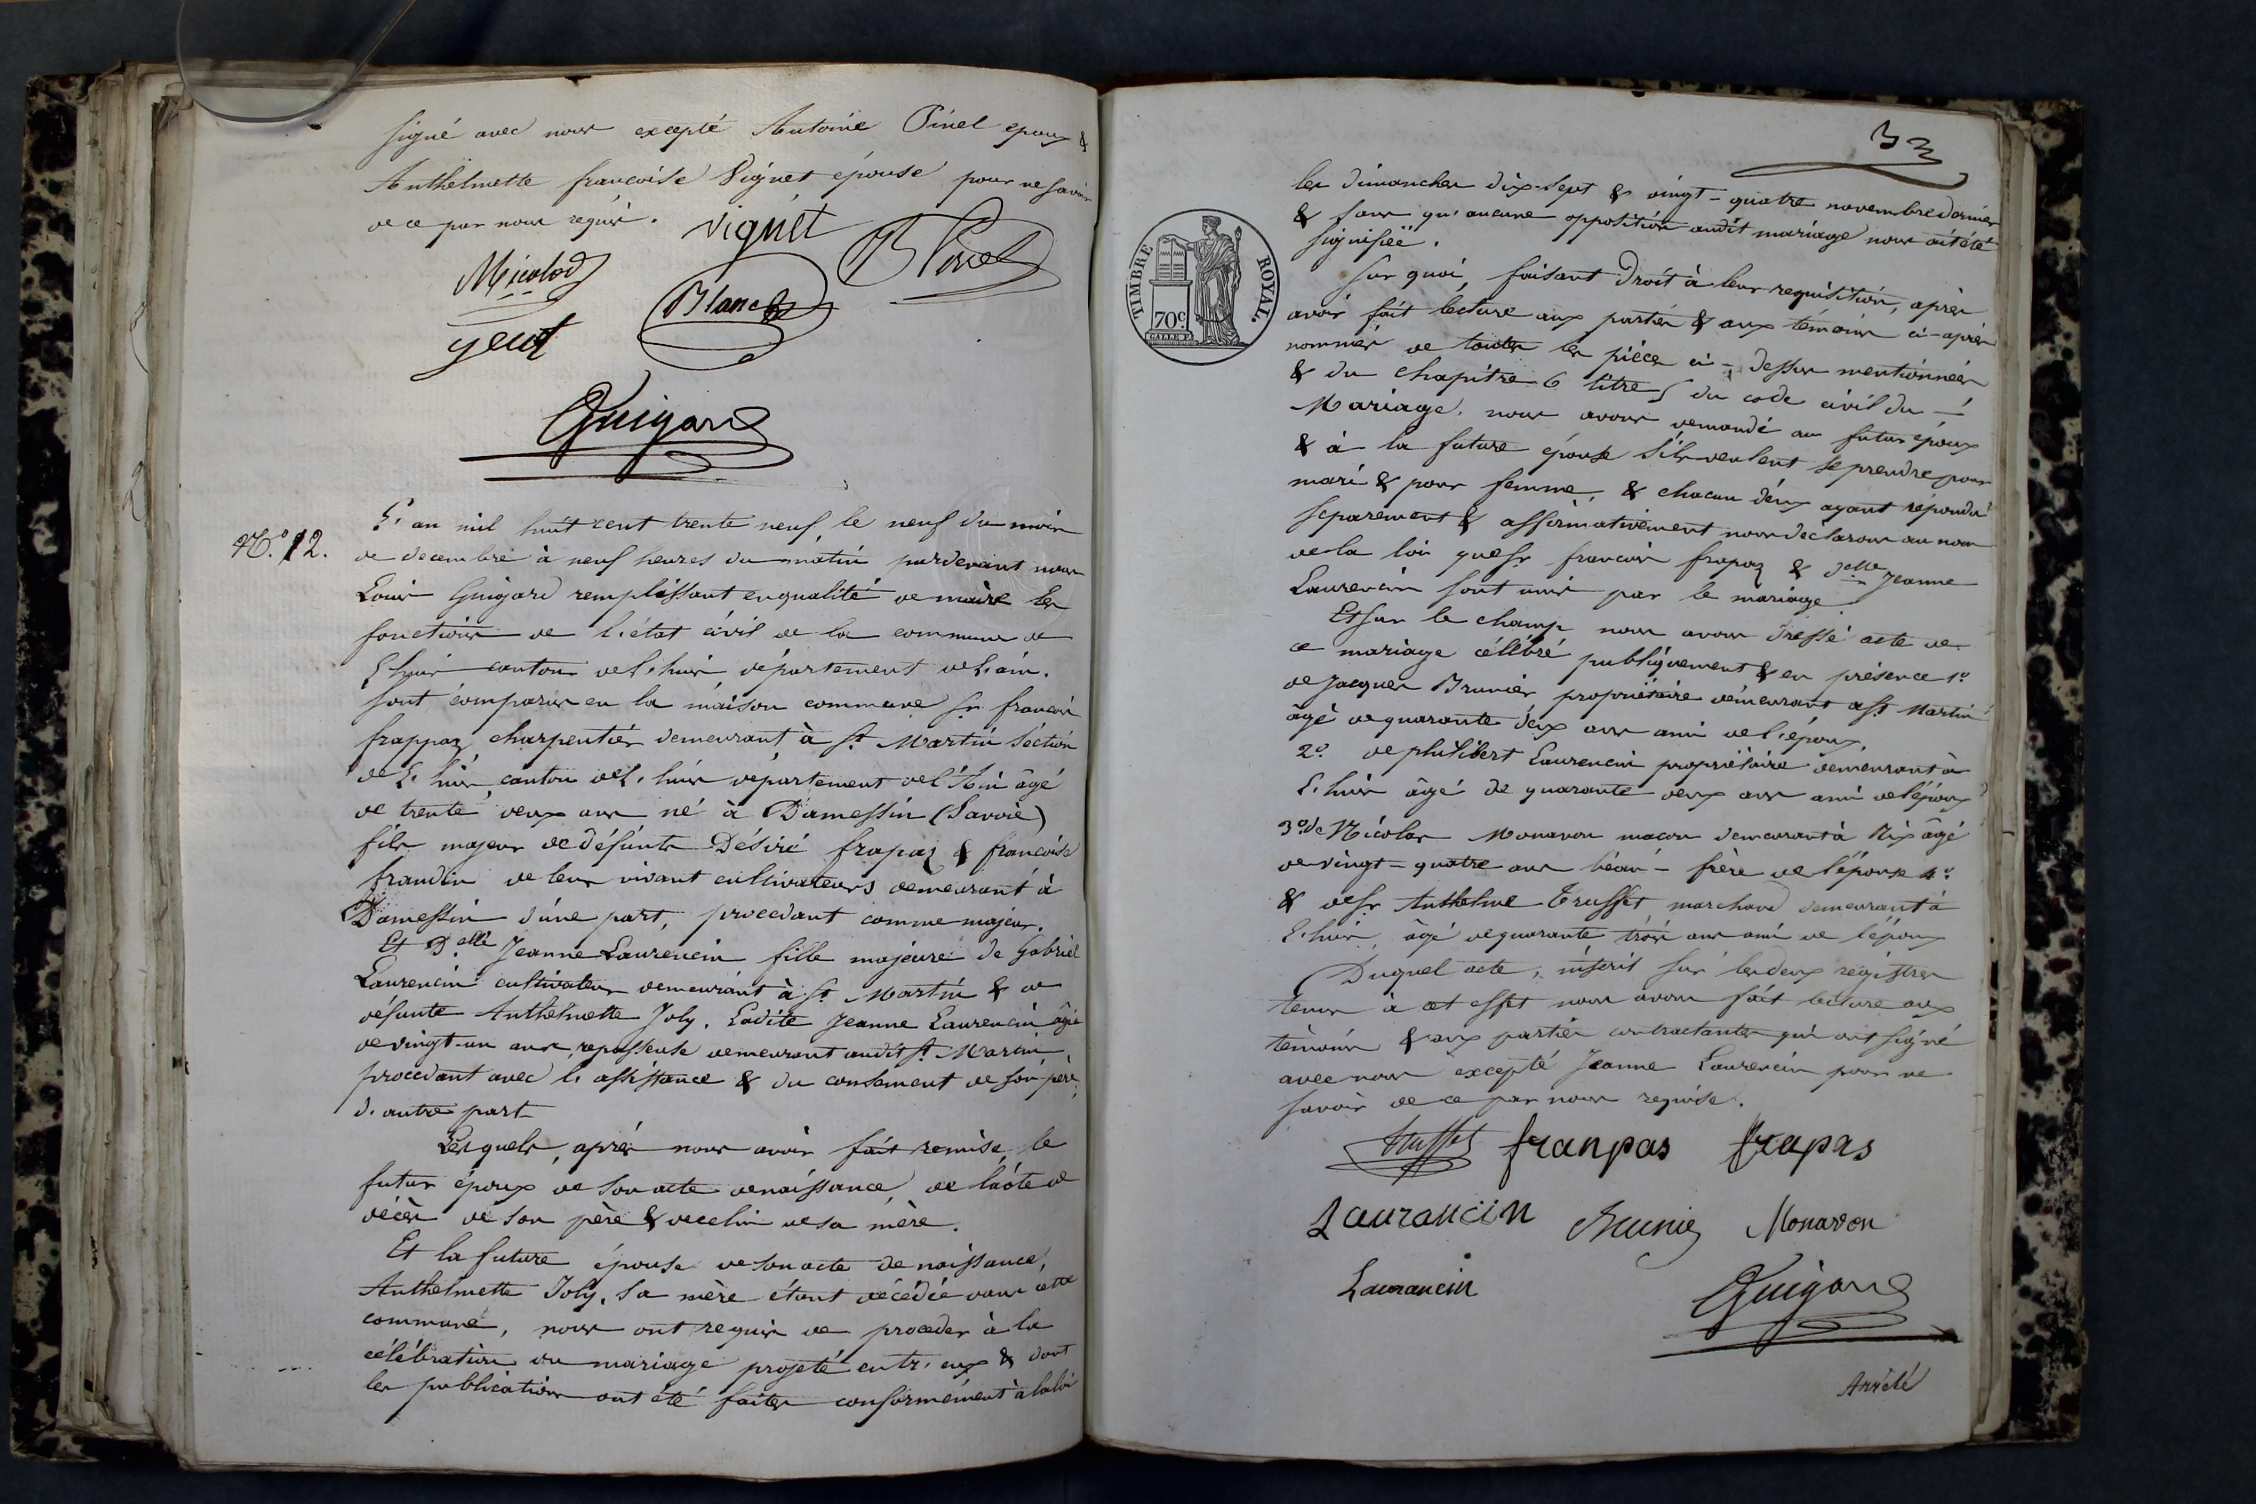 signé avec nous excepté Antoine Pinel epoux &
Anthelmette francoise Vignet épouse pour ne savoir
de ce par nous requis.
Vignet
B Pinel
Micolod
Blanc
yeut
Guigard
N.º 12.
L'an mil huit cent trente neuf le neuf du mois
de decembre à neuf heures du matin pardevant nous
Louis Guigard remplissant en qualité de maire les
fonctions de l'état civil de la commune de
L'huis canton de L'huis département de L'ain.
sont comparus en la maison commune Sr francois
frappaz charpentier demeurant à St Martin Séction
de L'huis canton de L'huis département de l'Ain âgé
de trente deux ans né à Damessin (Savoie)
fils majeur de défunts Désiré frapaz & francoise
fraudin de leur vivant cultivateurs demeurant à
Damessin d'une part, procedant comme majeur.
Et Delle Jeanne Laurencin fille majeure de Gabriel
Laurencin cultivateur demeurant à St Martin & de
défunte Anthelmette Joly. Ladite Jeanne Laurencin âgée
de vingt-un ans, repasseuse demeurant audit St Martin,
procedant avec l'assistance & du consement de son père,
d'autre part
Lesquels, après nous avoir fait remise, le
futur époux de son acte de naissance, de l'acte de
décès de son père & de celui de sa mère.
Et la future épouse de son acte de naissance,
Anthelmette Joly, sa mère étant décédée dans cette
commune, nous ont requis de proceder à la
célébration du mariage projeté entr'eux & dont
les publications ont été faites conformément à la loi
33
TIMBRE ROYAL.
70c
les dimanches dix-sept & vingt-quatre novembre dernier
& sans qu'aucune opposition audit mariage nous ait été
signifiée.
Sur quoi, faisant droit à leur requisition, après
avoir fait lecture aux parties & aux témoins ci-après
nommés de toutes les pièces ci-dessus mentionnées
& du chapitre 6 titre 5 du code civil du
Mariage, nous avons demandé au futur époux
& à la future épouse s'ils veulent se prendre pour
mari & pour femme, & chacun d'eux ayant répondu
separement & affirmativement nous declarons au nom
de la loi que Sr francois frapaz & delle Jeanne
Laurencin sont unis par le mariage.
Et sur le champ nous avons dressé acte de
ce mariage célébré publiquement & en présence 1º
de Jacques Brunier propriétaire demeurant à St Martin
âgé de quarante deux ans ami de l'époux,
2º de philibert Laurencin propriétaire demeurant à
L'huis âgé de quarante deux ans ami de l'époux
3º de Nicolas Monavon macon demeurant à Rix âgé
de vingt-quatre ans beau-frère de l'épouse 4º
& de Sr Anthelme Trusset marchand demeurant à
L'huis, âgé de quarante trois ans ami de l'époux
Duquel acte, inscrit sur les deux régistres
tenus à cet effet nous avons fait lecture aux
témoins & aux parties contractantes qui ont signé
avec nous excepté Jeanne Laurencin pour ne
savoir de ce par nous requise.
Trusset franpas frapas
Laurancin Brunie Monavon
Laurancin
Guigard
Arrêté